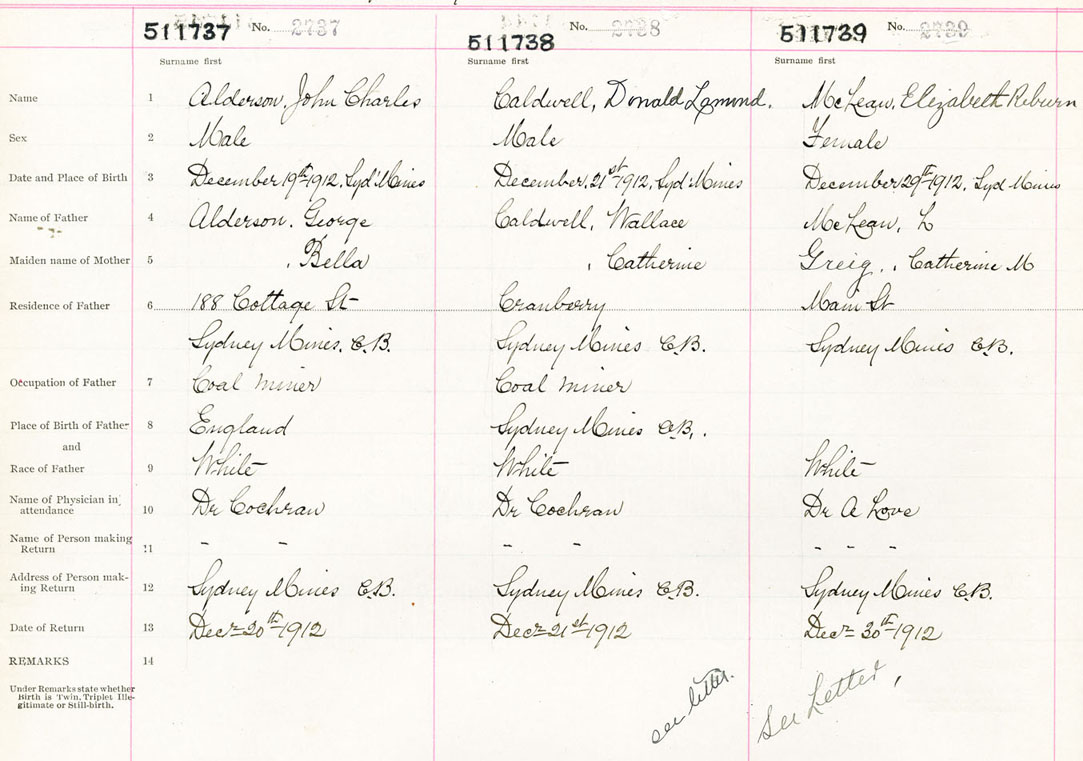 511737 No. 2737 511738 No. 2738 511739 No. 2739
Surname first Surname first Surname first
Name 1 Alderson, John Charles Caldwell, Donald Lamond. McLean, Elizabeth Reburn
Sex 2 Male Male Female
Date and Place of Birth 3 December 19th 1912, Syd Mines December, 21st 1912, Syd Mines December 29th 1912, Syd Mines
Name of Father 4 Alderson. George Caldwell, Wallace McLean, L
Maiden name of Mother 5 , Bella , Catherine Greig, , Catherine M
Residence of Father 6 188 Cottage St Cranberry Main St
Sydney Mines. C.B. Sydney Mines C.B. Sydney Mines C.B.
Occupation of Father 7 Coal miner Coal miner
Place of Birth of Father 8 England Sydney Mines C.B, .
and
Race of Father 9 White White White
Name of Physician in
attendance 10 Dr Cochran Dr Cochran Dr A Love
Name of Person making
Return 11 - - - - - - -
Address of Person mak-
ing Return 12 Sydney Mines C.B. Sydney Mines C.B. Sydney Mines C.B.
Date of Return 13 Decr 20th 1912 Decr 21st 1912 Decr 30th 1912
REMARKS 14
Under Remarks state whether
Birth is Twin, Triplet Ille-
gitimate or Still-birth.
see letter. See Letter,